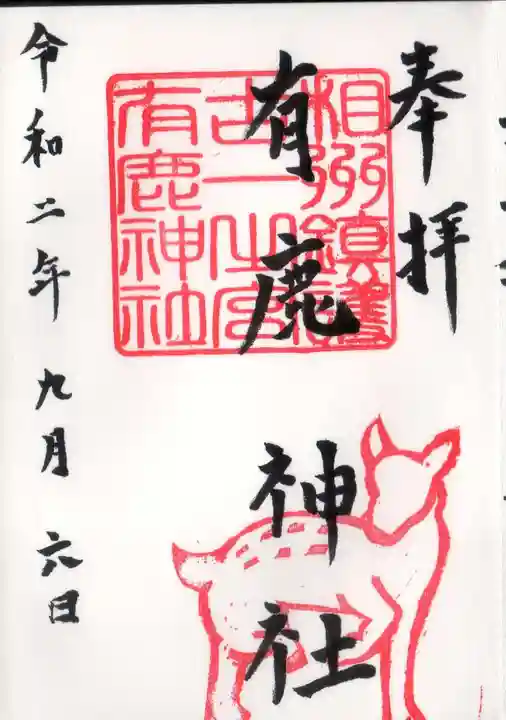 奉拝
有鹿神社
相州鎮護
古一之宮
有鹿神社
令和二年九月六日